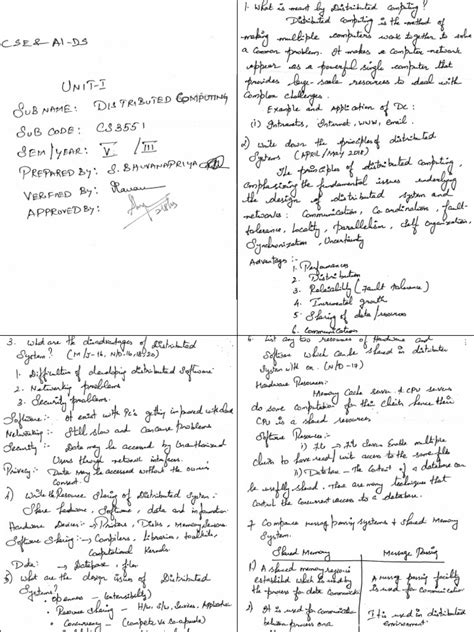 CSE & AI-DS
UNIT-I
SUB NAME: DISTRIBUTED COMPUTING
SUB CODE: CS3551
SEM/YEAR: V / III
PREPARED BY: S. BHUVANAPRIYA
VERFIED BY:
APPROVED BY:
1. What is meant by distributed computing?
Distributed computing is the method of
making multiple computers work together to solve
a common problem. It makes a computer network
appear as a powerful single computer that
provides large-scale resources to deal with
complex challenges.
Example and Application of DC:
(i) Intranets, Internet, WWW, Email.
2) Write down the principles of distributed
Systems (APRIL/MAY 2018)
The principles of distributed computing,
emphasizing the fundamental issues underlying
the design of distributed system and
networks: Communication, Co-ordination, fault-
tolerance, Locality, Parallelism, Self organization,
Synchronization, Uncertainty
Advantages:-
1. Performances
2. Distribution
3. Reliability (Fault tolerance)
4. Incremental growth
5. Sharing of data/resources
6. Communication
3. What are the disadvantages of Distributed
System? (M/J-16,
1. Difficulties of developing distributed software
2. Networking problems
3. Security problems.
Software:- exist with Pc's getting improved
Networking:- Still slow and can cause problems
Security:- Data may be accessed by unauthorized
Users through network
Privacy:- Data may be accessed without the owners
consent.
4) Write the Resource Sharing of Distributed System:-
Share hardware, Software, data and information
Hardware Devices:- Printers, Disks, Memory
Software Sharing:- Compilers, Libraries, toolkits,
Computational Kernels
Data: → Database, files
5) What are the design issues of Distributed
Systems?
- Openness - (extensibility)
- Resource sharing - H/w, S/w, Services, Applications
- Concurrency -
6. List any two resources of Hardware and
Software which can be shared in distributed
System with ex. (N/D-17)
Hardware Resources:-
Memory Cache server & CPU servers
do some computation for their clients hence their
CPU is a shared resources.
Software Resources:-
i) File → File Server enable multiple
clients to have read/write access to the same files
ii) Database - The content of a database can
be usefully shared. There are many techniques that
control the concurrent access to a database.
7. Compare message passing systems & Shared Memory
System.
Shared Memory
Message Passing
1) A shared memory region is
established which is used by
the process for data communication
A message passing facility
is used for communication
2) It is used for communication
between process on a
It is used in distributed
environment